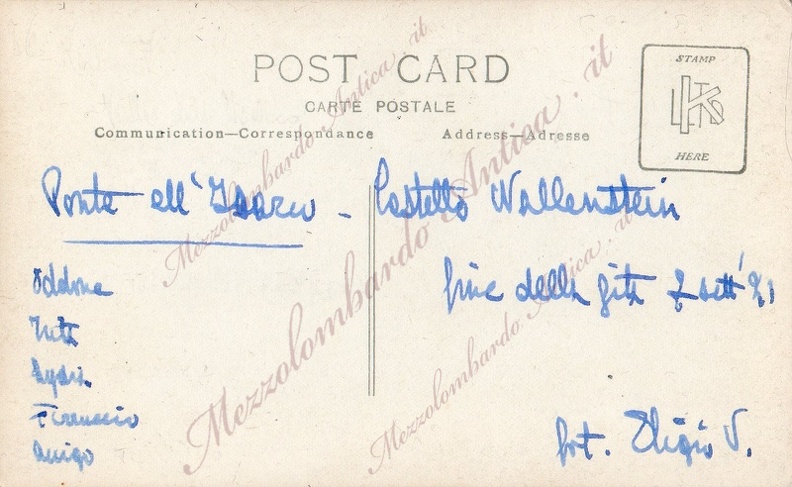 POST CARD
CARTE POSTALE
Communication—Correspondance
Address—Adresse
STAMP
LEKTOS
HERE
Ponte all'Isarco - Castello Wallenstein
Oddone
Lydia
Ferruccio
Arrigo
fine della gita 7 sett '21
fot. Eligio V.
Mezzolombardo Antica.it
Mezzolombardo Antica.it
Mezzolombardo Antica.it